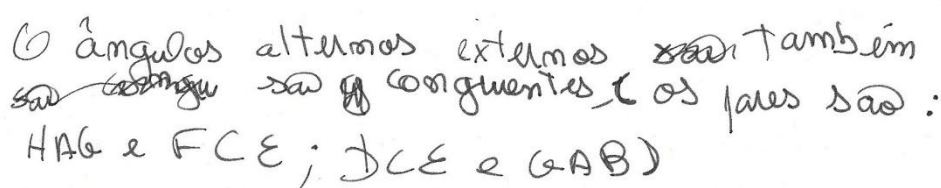 O ângulos alternos externos também
são congruentes, e os pares são:
HAG e FCE; DCE e GAB)